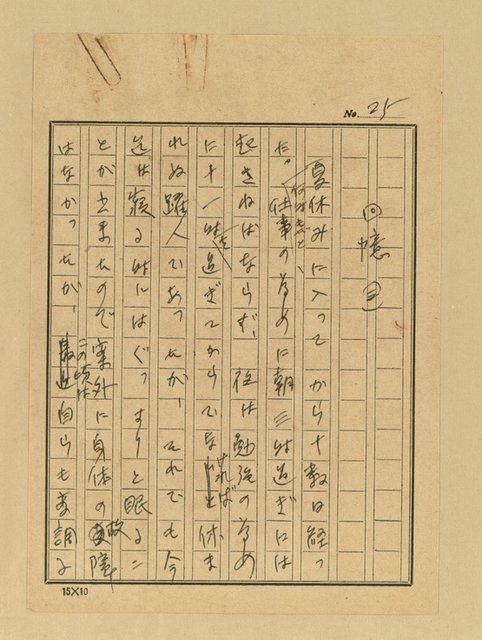 No. 25
回憶(三)
夏休みに入ってから十数日経っ
た。仕事の為めに朝三時過ぎには
起きねばならず、夜は勉強の為め
に十一時を過ぎてからでなければ休ま
れぬ躍人であったが、それでも今
迄は寝る時にはぐっすりと眠るこ
とが出来たので案外に身体の故障
はなかったが、この頃は自らも変調を
15×10